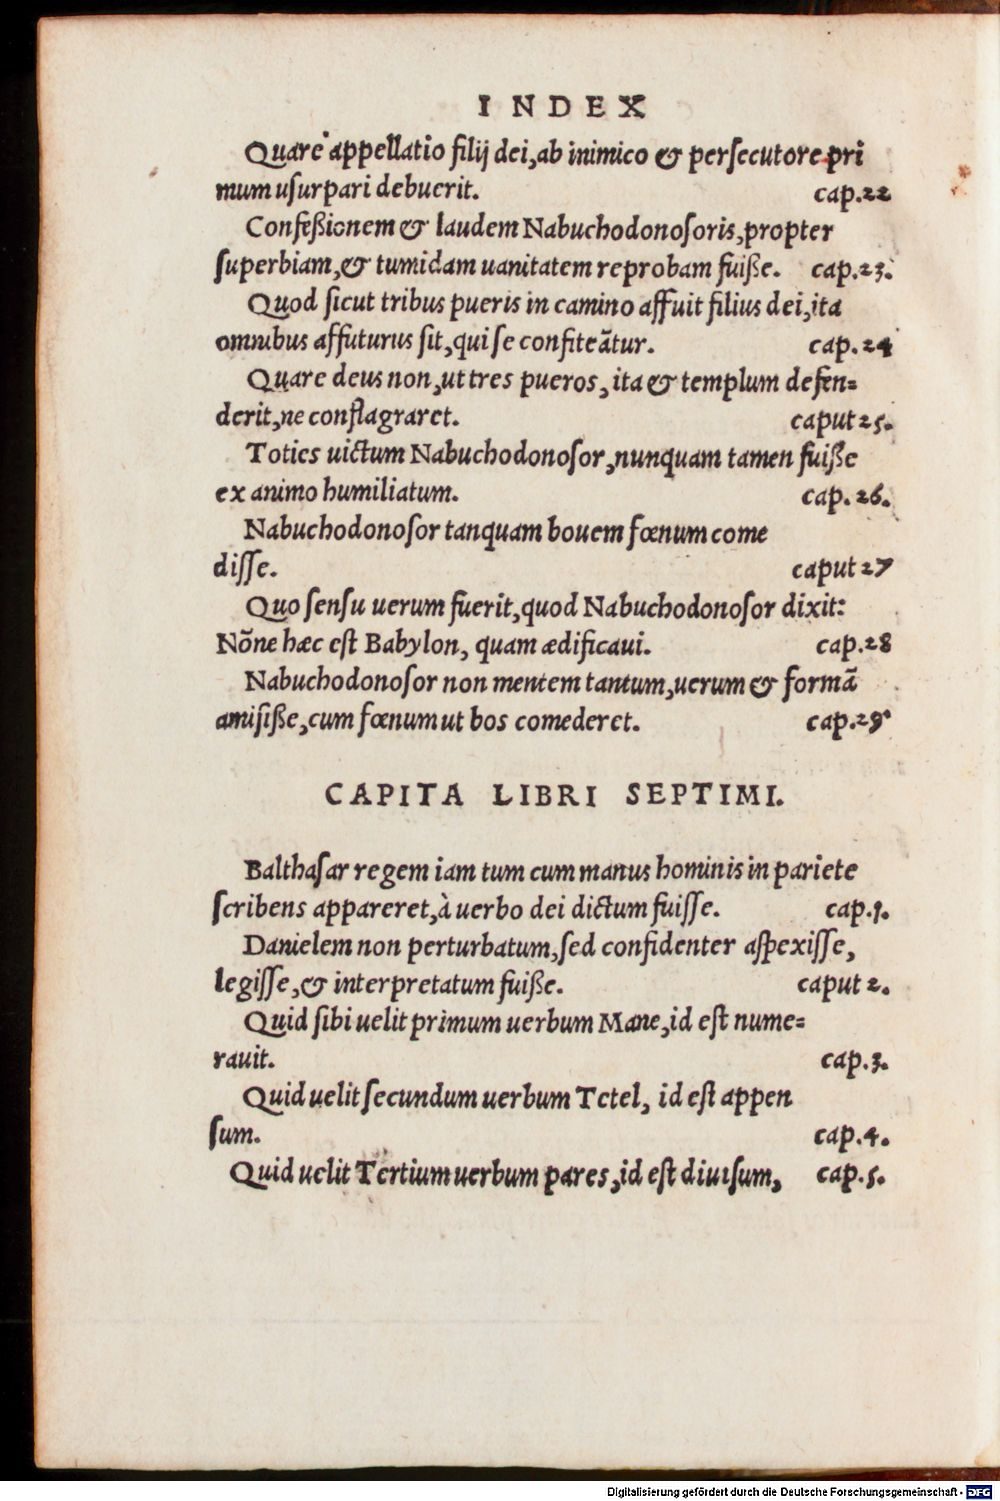 INDEX
Quare appellatio filij dei, ab inimico & persecutore pri
mum usurpari debuerit. cap.22
Confeßionem & laudem Nabuchodonosoris, propter
superbiam, & tumidam uanitatem reprobam fuiße. cap.23.
Quod sicut tribus pueris in camino affuit filius dei, ita
omnibus affuturus sit, qui se confiteātur. cap.24
Quare deus non, ut tres pueros, ita & templum defen=
derit, ne conflagraret. caput 25.
Toties uictum Nabuchodonosor, nunquam tamen fuiße
ex animo humiliatum. cap. 26.
Nabuchodonosor tanquam bouem fœnum come
disse. caput 27
Quo sensu uerum fuerit, quod Nabuchodonosor dixit:
Nõne hæc est Babylon, quam ædificaui. cap.28
Nabuchodonosor non mentem tantum, uerum & formã
amisiße, cum fœnum ut bos comederet. cap.29
CAPITA LIBRI SEPTIMI.
Balthasar regem iam tum cum manus hominis in pariete
scribens appareret, à uerbo dei dictum fuisse. cap.1.
Danielem non perturbatum, sed confidenter aspexisse,
legisse, & interpretatum fuiße. caput 2.
Quid sibi uelit primum uerbum Mane, id est nume=
rauit. cap.3.
Quid uelit secundum uerbum Tetel, id est appen
sum. cap.4.
Quid uelit Tertium uerbum pares, id est diuisum, cap.5.
Digitalisierung gefördert durch die Deutsche Forschungsgemeinschaft - DFG